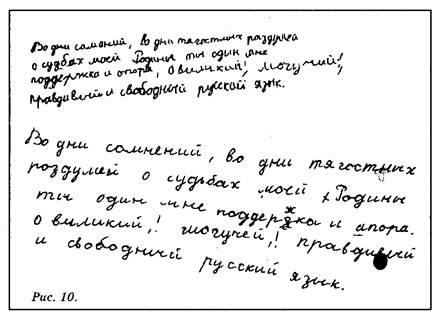 Во дни сомнений, во дни тягостных раздумей
о судьбах моей Родины ты один мне
поддержка и опора, О виликий! могучий!
правдивый и свободный русский язык.
Во дни сомнений, во дни тягостных
роздумей о судьбах моей Родины
ты один мне поддержка и апора.
О виликий,! могучей,! правдивый
и свободний русский язык.
Рис. 10.